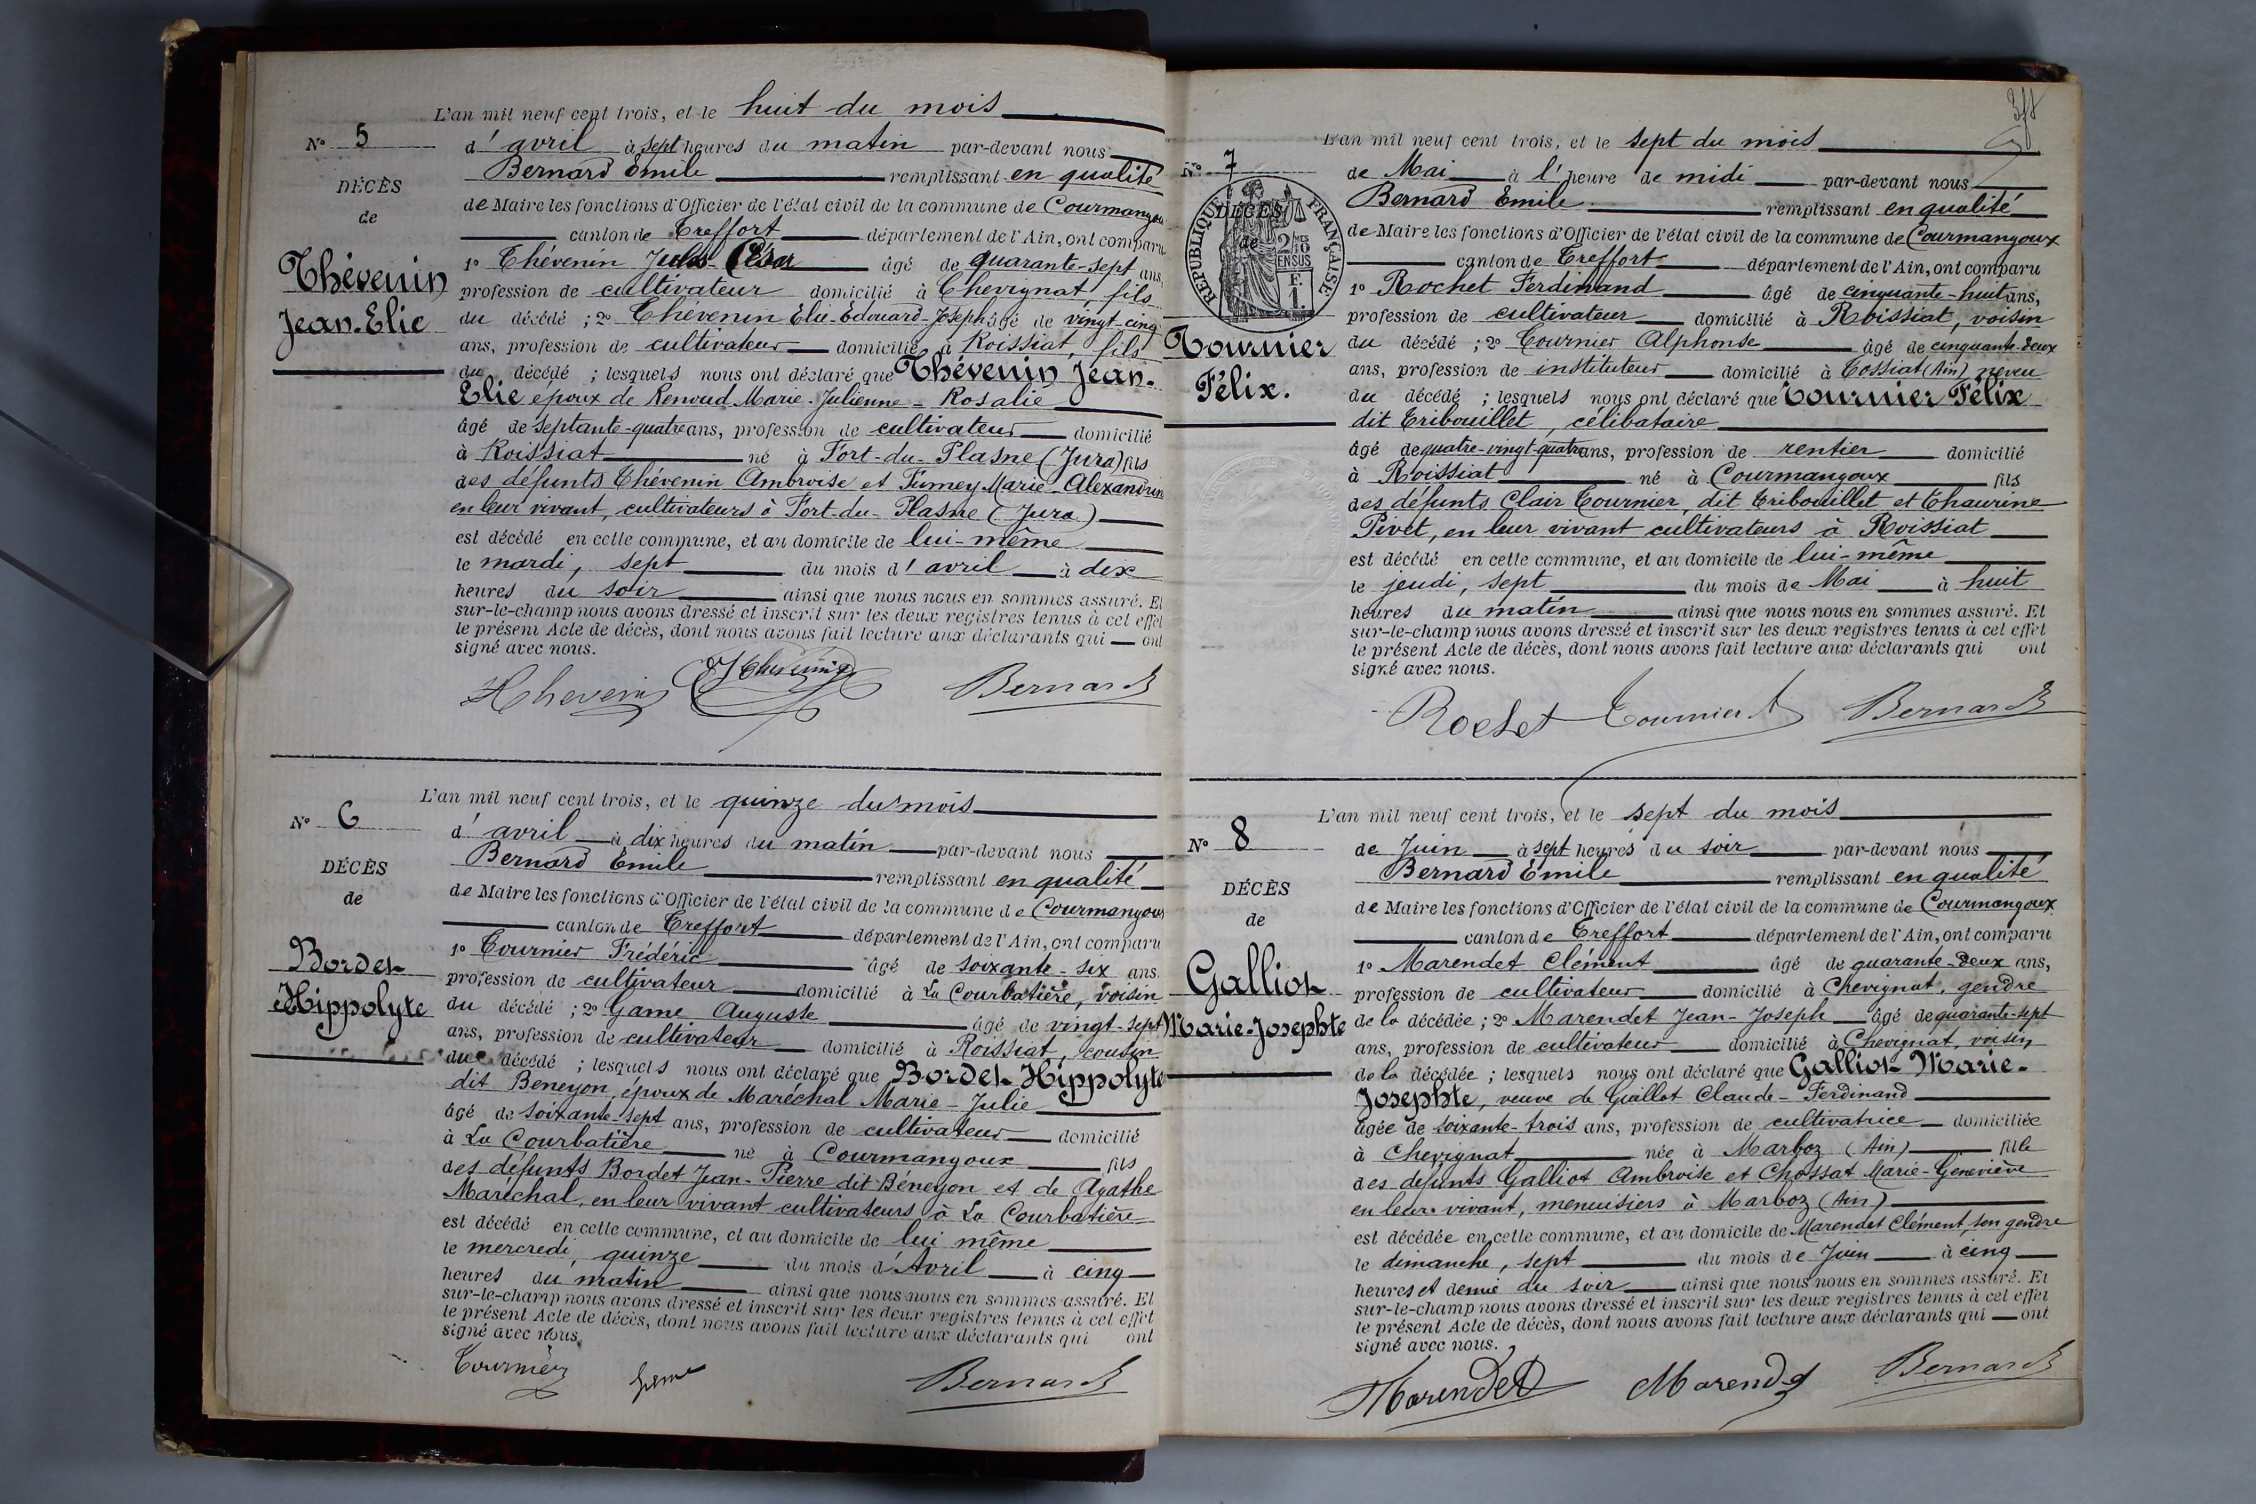 L'an mil neuf cent trois, et le huit du mois
N° 5
d'avril à sept heures du matin par-devant nous
Bernard Emile remplissant en qualité
DÉCÈS
de Maire les fonctions d'Officier de l'état civil de la commune de Courmangoux
de
canton de Treffort département de l'Ain, ont comparu
Thévenin
Jean-Elie
1° Thévenin Jules César âgé de quarante-sept ans,
profession de cultivateur domicilié à Chevignat, fils
du décédé ; 2° Thévenin Elie-Edouard-Joseph âgé de vingt-cinq
ans, profession de cultivateur domicilié à Roissiat, fils
du décédé ; lesquels nous ont déclaré que Thévenin Jean-
Elie époux de Renoud Marie-Julienne-Rosalie
âgé de septante-quatre ans, profession de cultivateur domicilié
à Roissiat né à Fort-du-Plasne (Jura) fils
des défunts Thévenin Ambroise et Fumey Marie-Alexandrine
en leur vivant, cultivateurs à Fort-du-Plasne (Jura)
est décédé en cette commune, et au domicile de lui-même
le mardi, sept du mois d'avril à dix
heures du soir ainsi que nous nous en sommes assuré. Et
sur-le-champ nous avons dressé et inscrit sur les deux registres tenus à cet effet
le présent Acte de décès, dont nous avons fait lecture aux déclarants qui ont
signé avec nous.
Thevenin JThévenin Bernard
L'an mil neuf cent trois, et le quinze du mois
N° 6
d'avril à dix heures du matin par-devant nous
Bernard Emile remplissant en qualité
DÉCÈS
de Maire les fonctions d'Officier de l'état civil de la commune de Courmangoux
de
canton de Treffort département de l'Ain, ont comparu
Bordet
Hippolyte
1° Tournier Frédéric âgé de soixante-six ans
profession de cultivateur domicilié à La Courbatière, voisin
du décédé ; 2° Game Auguste âgé de vingt-sept
ans, profession de cultivateur domicilié à Roissiat, cousin
du décédé ; lesquels nous ont déclaré que Bordet Hippolyte
dit Beneyon, époux de Maréchal Marie-Julie
âgé de soixante-sept ans, profession de cultivateur domicilié
à La Courbatière né à Courmangoux fils
des défunts Bordet Jean-Pierre dit Béneyon et de Agathe
Maréchal, en leur vivant cultivateurs à La Courbatière
est décédé en cette commune, et au domicile de lui même
le mercredi, quinze du mois d'Avril à cinq
heures du matin ainsi que nous nous en sommes assuré. Et
sur-le-champ nous avons dressé et inscrit sur les deux registres tenus à cet effet
le présent Acte de décès, dont nous avons fait lecture aux déclarants qui ont
signé avec nous.
Tournier Game Bernard
L'an mil neuf cent trois, et le sept du mois
N° 7
de Mai à l'heure de midi par-devant nous
Bernard Emile remplissant en qualité
DÉCÈS
RÉPUBLIQUE FRANÇAISE
de Maire les fonctions d'Officier de l'état civil de la commune de Courmangoux
de
2/10 EN SUS
F. 1.
canton de Treffort département de l'Ain, ont comparu
Tournier
Félix.
1° Rochet Ferdinand âgé de cinquante-huit ans,
profession de cultivateur domicilié à Roissiat, voisin
du décédé ; 2° Tournier Alphonse âgé de cinquante-deux
ans, profession de instituteur domicilié à Cossiat (Ain) neveu
du décédé ; lesquels nous ont déclaré que Tournier Félix
dit Tribouillet, célibataire
âgé de quatre-vingt-quatre ans, profession de rentier domicilié
à Roissiat né à Courmangoux fils
des défunts Clair Tournier, dit Tribouillet et Thaurine
Pivet, en leur vivant cultivateurs à Roissiat
est décédé en cette commune, et au domicile de lui-même
le jeudi, sept du mois de Mai à huit
heures du matin ainsi que nous nous en sommes assuré. Et
sur-le-champ nous avons dressé et inscrit sur les deux registres tenus à cet effet
le présent Acte de décès, dont nous avons fait lecture aux déclarants qui ont
signé avec nous.
Rochet Tournier A Bernard
L'an mil neuf cent trois, et le sept du mois
N° 8
de Juin à sept heures du soir par-devant nous
Bernard Émile remplissant en qualité
DÉCÈS
de Maire les fonctions d'Officier de l'état civil de la commune de Courmangoux
de
canton de Treffort département de l'Ain, ont comparu
Galliot
Marie-Josephte
1° Marendet Clément âgé de quarante-deux ans,
profession de cultivateur domicilié à Chevignat, gendre
de la décédée ; 2° Marendet Jean-Joseph âgé de quarante-sept
ans, profession de cultivateur domicilié à Chevignat, voisin
de la décédée ; lesquels nous ont déclaré que Galliot Marie-
Josephte, veuve de Guillot Claude-Ferdinand
âgée de soixante-trois ans, profession de cultivatrice domiciliée
à Chevignat née à Marboz (Ain) fille
des défunts Galliot Ambroise et Chossat Marie-Geneviève
en leur vivant, menuisiers à Marboz (Ain)
est décédée en cette commune, et au domicile de Marendet Clément, son gendre
le dimanche, sept du mois de Juin à cinq
heures et demie du soir ainsi que nous nous en sommes assuré. Et
sur-le-champ nous avons dressé et inscrit sur les deux registres tenus à cet effet
le présent Acte de décès, dont nous avons fait lecture aux déclarants qui ont
signé avec nous.
Marendet Marendet Bernard